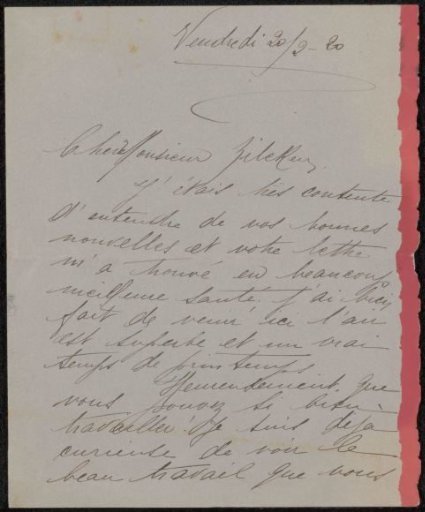 Vendredi 20/2-20
Cher Monsieur Zilcken,
J'étais très contente
d'entendre de vos bonnes
nouvelles et votre lettre
m'a trouvé en beaucoup
meilleure santé. J'ai bien
fait de venir ici l'air
est superbe et un vrai
temps de printemps.
Heureusement que
vous pouvez si bien
travailler. Je suis déjà
curieuse de voir le
beau travail que vous